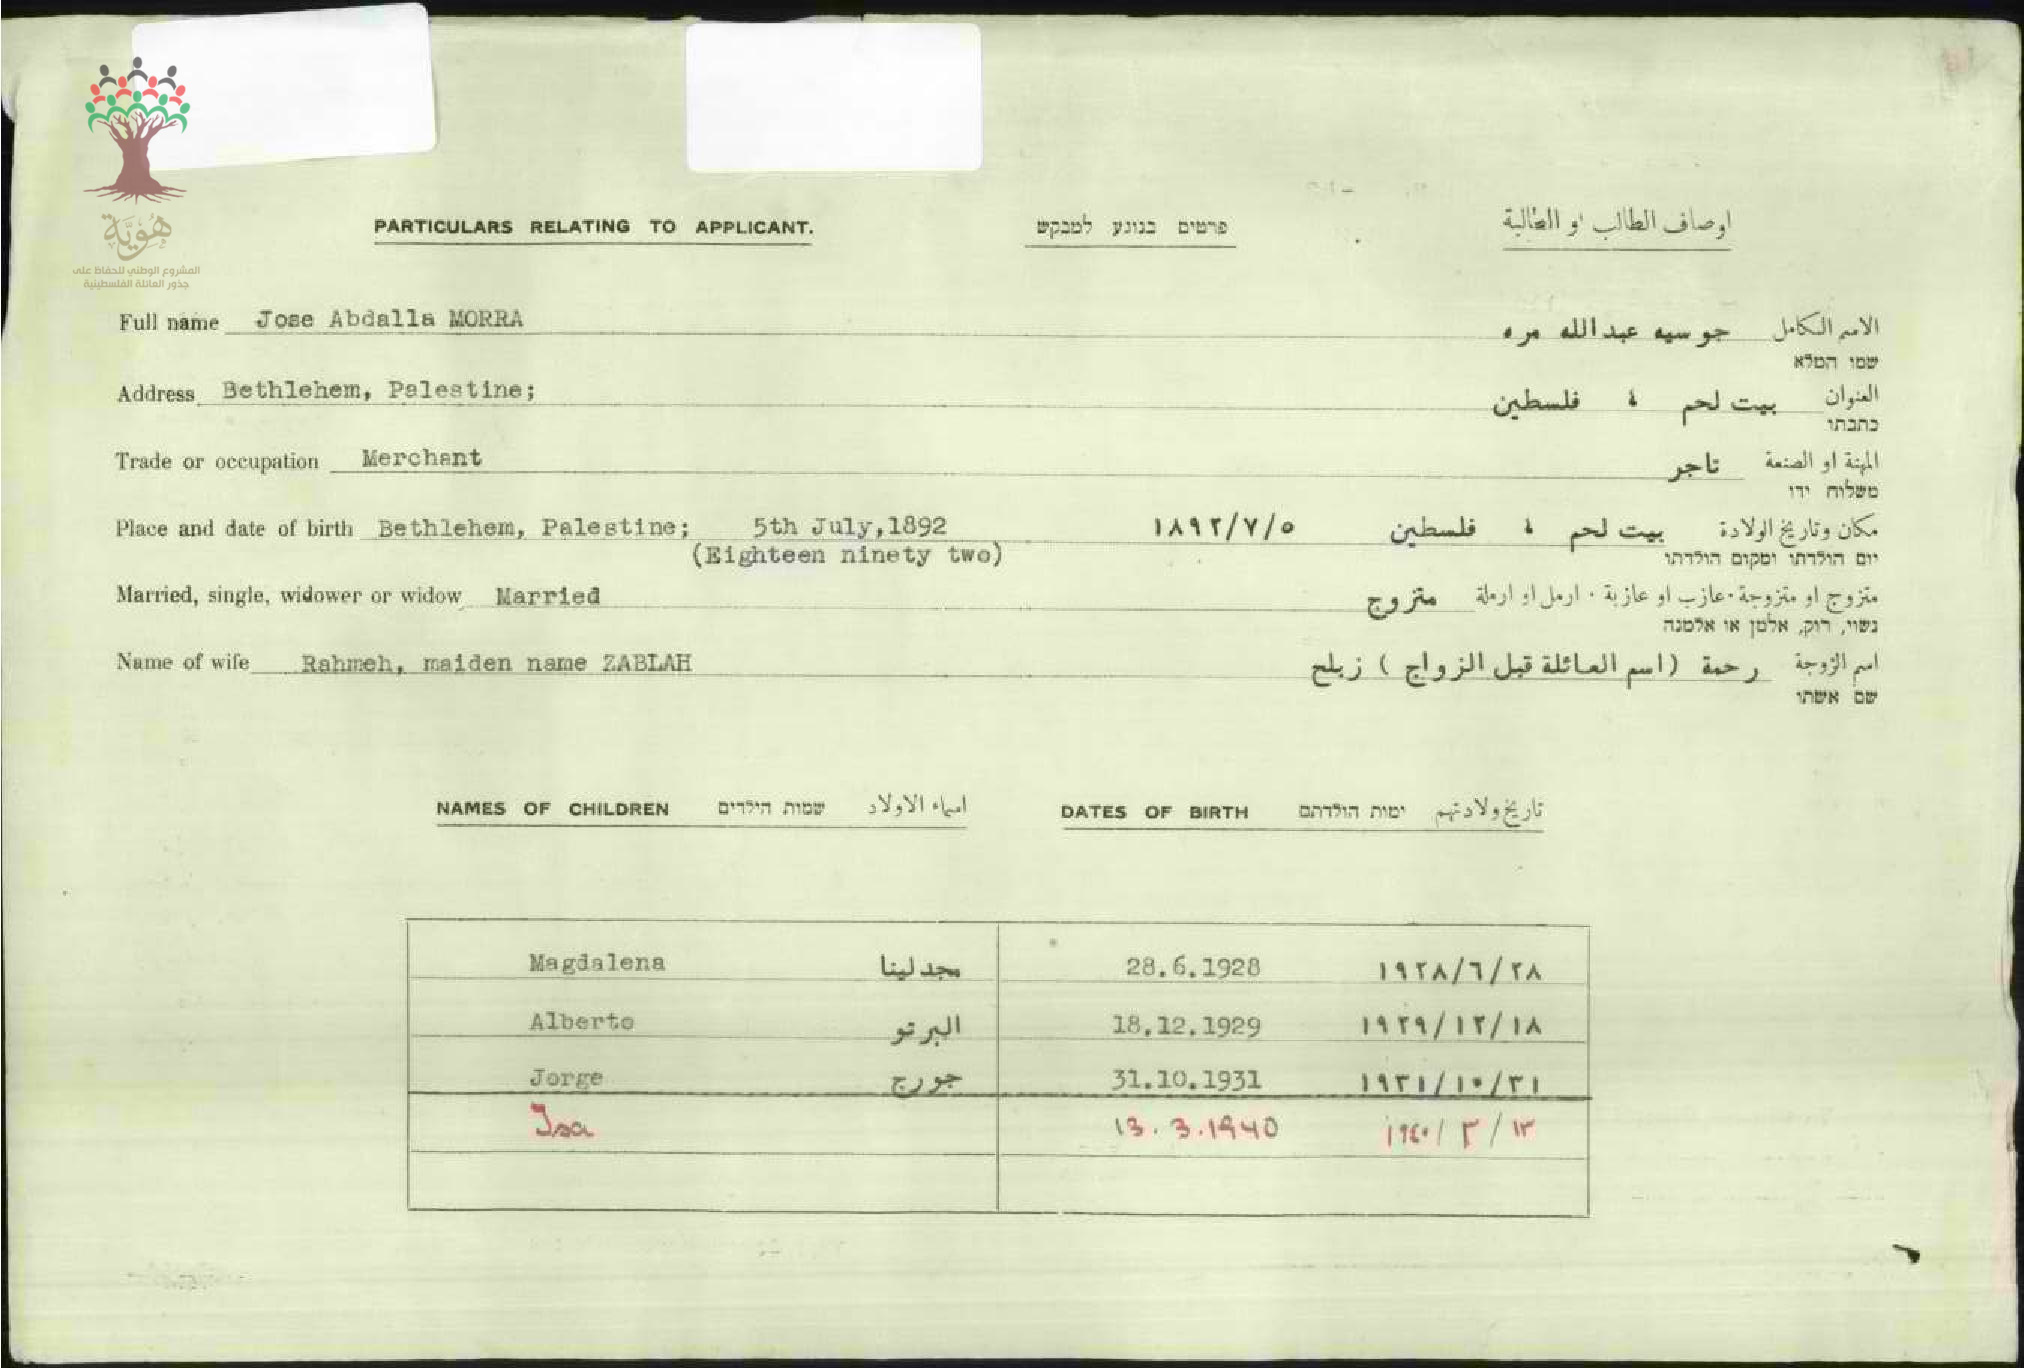 هُوَيَّة
المشروع الوطني للحفاظ على
جذور العائلة الفلسطينية
PARTICULARS RELATING TO APPLICANT. פרטים בנוגע למבקש اوصاف الطالب او الطالبة
Full name Jose Abdalla MORRA جوسيه عبدالله مره الاسم الكامل
שמו המלא
Address Bethlehem, Palestine; بيت لحم ، فلسطين العنوان
כתבתו
Trade or occupation Merchant تاجر المهنة او الصنعة
משלוח ידו
Place and date of birth Bethlehem, Palestine; 5th July,1892 ١٨٩٢/٧/٥ بيت لحم ، فلسطين مكان وتاريخ الولادة
(Eighteen ninety two) יום הולדתו ומקום הולדתו
Married, single, widower or widow Married متزوج متزوج او متزوجة ٠ عازب او عازبة ٠ ارمل او ارملة
נשוי, רוק, אלמן או אלמנה
Name of wife Rahmeh, maiden name ZABLAH رحمة (اسم العائلة قبل الزواج ) زبلح اسم الزوجة
שם אשתו
NAMES OF CHILDREN שמות הילדים اسماء الاولاد DATES OF BIRTH ימות הולדתם تاريخ ولادتهم
Magdalena مجدلينا 28.6.1928 ١٩٢٨/٦/٢٨
Alberto البرتو 18.12.1929 ١٩٢٩/١٢/١٨
Jorge جورج 31.10.1931 ١٩٣١/١٠/٣١
Isa 13.3.1940 ١٩٤٠/٣/١٣